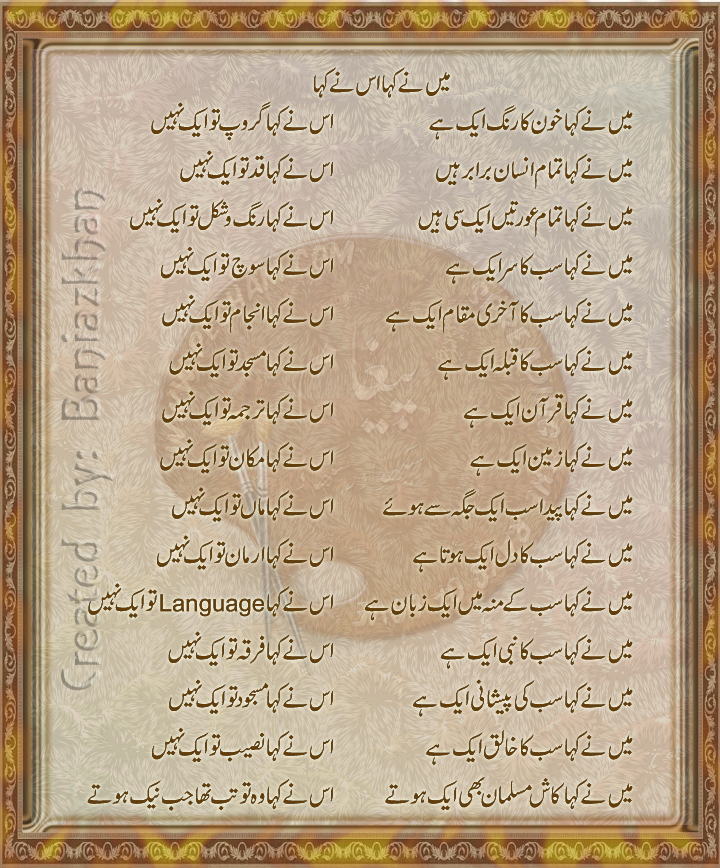 میں نے کہا اس نے کہا
میں نے کہا خون کا رنگ ایک ہے اس نے کہا گروپ تو ایک نہیں
میں نے کہا تمام انسان برابر ہیں اس نے کہا قد تو ایک نہیں
میں نے کہا تمام عورتیں ایک سی ہیں اس نے کہا رنگ و شکل تو ایک نہیں
میں نے کہا سب کا سر ایک ہے اس نے کہا سوچ تو ایک نہیں
میں نے کہا سب کا آخری مقام ایک ہے اس نے کہا انجام تو ایک نہیں
میں نے کہا سب کا قبلہ ایک ہے اس نے کہا مسجد تو ایک نہیں
میں نے کہا قرآن ایک ہے اس نے کہا ترجمہ تو ایک نہیں
میں نے کہا زمین ایک ہے اس نے کہا مکان تو ایک نہیں
میں نے کہا پیدا سب ایک جگہ سے ہوئے اس نے کہا ماں تو ایک نہیں
میں نے کہا سب کا دل ایک ہوتا ہے اس نے کہا ارمان تو ایک نہیں
میں نے کہا سب کے منہ میں ایک زبان ہے اس نے کہا Language تو ایک نہیں
میں نے کہا سب کا نبی ایک ہے اس نے کہا فرقہ تو ایک نہیں
میں نے کہا سب کی پیشانی ایک ہے اس نے کہا مسجود تو ایک نہیں
میں نے کہا سب کا خالق ایک ہے اس نے کہا نصیب تو ایک نہیں
میں نے کہا کاش مسلمان بھی ایک ہوتے اس نے کہا وہ تو تب تھا جب نیک ہوتے
Created by: Baniazkhan